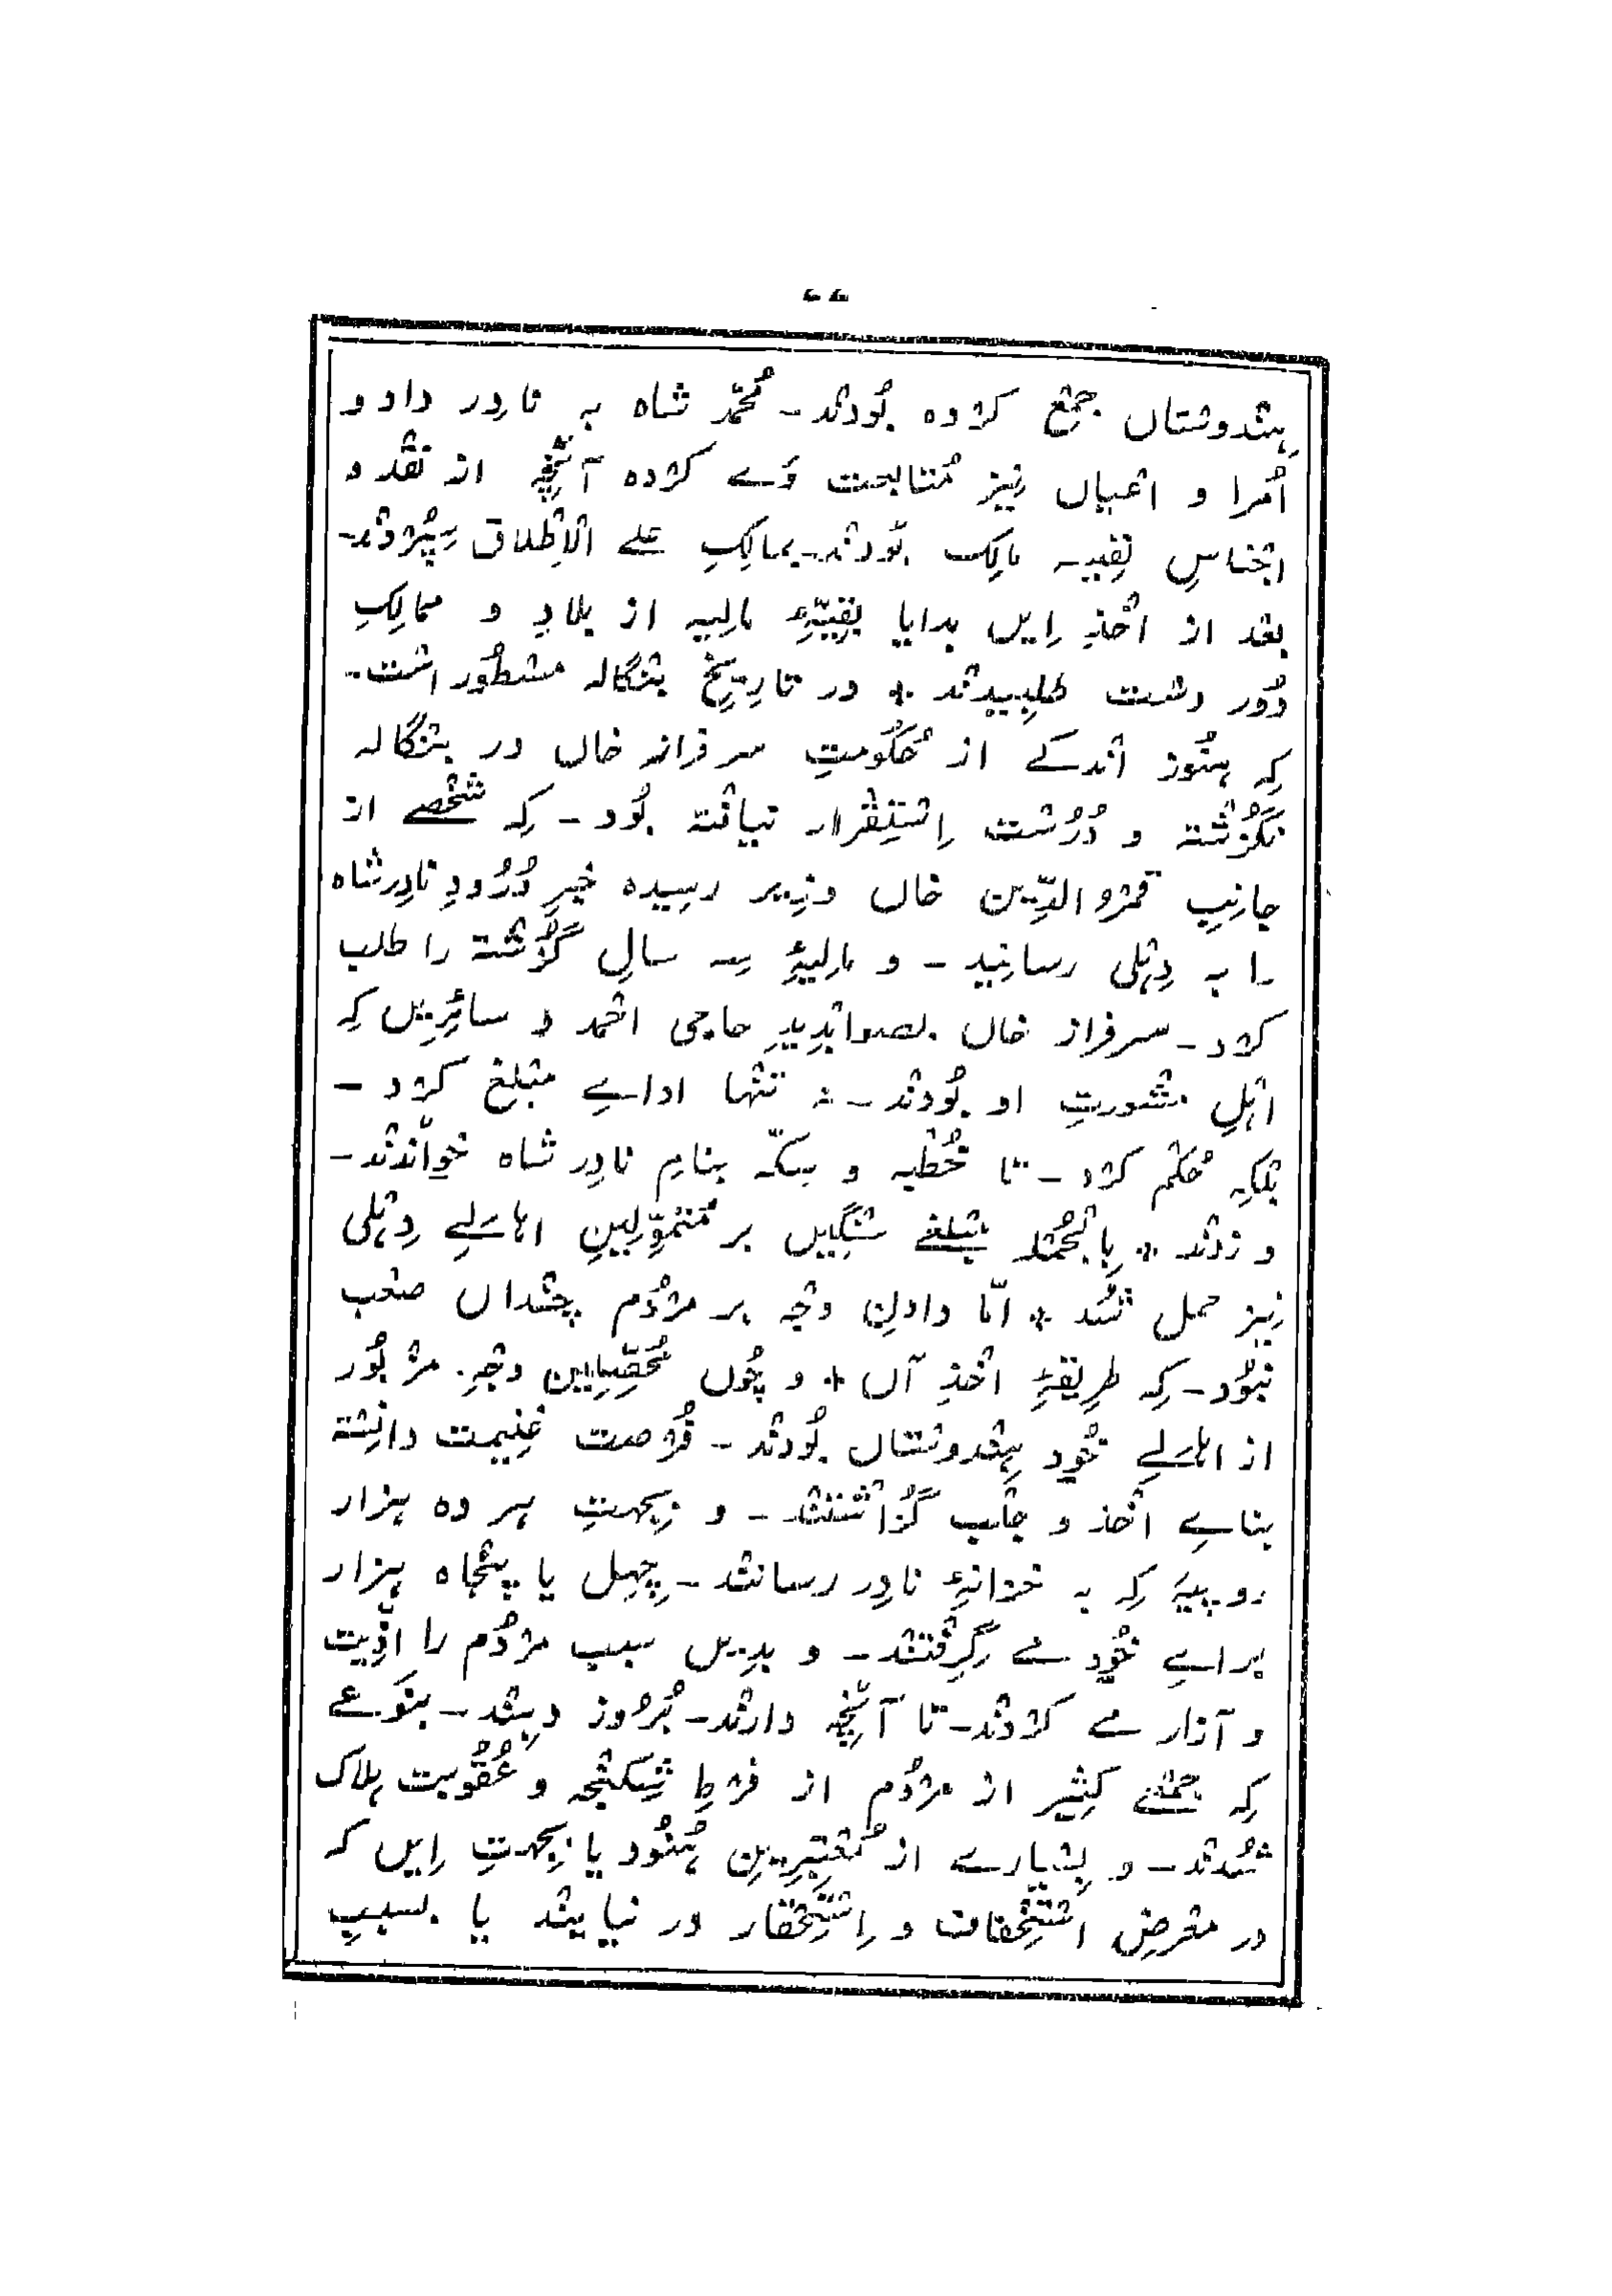 ہِنْدوسْتاں جمْع کرْدہ بُودنْد - مُحمّد شاہ بہ نادِر داد و
اُمرا و اعْیاں نِیز مُتابعت وَے کرْدہ آنْچِہ از نقْد و
اجْناسِ نفِیسہ مالِک بُودنْد - بمالِکِ علے الْاِطْلاق سِپُرْدنْد -
بعْد از اخْذِ اِیں ہدایا بقِیّۂِ مالیہ از بلادِ و ممالِکِ
دُور دسْت طلبِیدنْد * در تارِیخِ بنْگالہ مسْطُور اسْت -
کِہ ہنُوز انْدکے از حُکُومتِ سرفراز خاں در بنْگالہ
نگُذشْتہ و دُرُسْت اِسْتِقْرار نیافْتہ بُود - کِہ شخْصے از
جانِبِ قمرُو الدِّین خاں وزِیر رسِیدہ خبرِ وُرُودِ نادِر شاہ
را بہ دِہْلی رسانِید - و مالیۂِ سہ سالِ گُذشْتہ را طلب
کرْد - سرفراز خاں بصوابْدِیدِ حاجی احْمد و سائِرِیں کِہ
اہْلِ مشورتِ او بُودنْد - نہ تنْہا اداے مبْلغ کرْد -
بلْکِہ حُکْم کرْد - تا خُطْبہ و سِکّہ بنامِ نادِر شاہ خوانْدنْد -
و زدنْد * بِالْجُمْلہ مبْلغے سنْگِیں بر مُتموِّلِینِ اہالے دِہْلی
نِیز حمل شُد * امّا دادنِ وجْہ بر مرْدُم چنْداں صعْب
نبُود - کِہ طرِیقۂِ اخْذِ آں * و چُوں مُحصِّلِینِ وجْہِ مزْبُور
از اہالے خُود ہِنْدوسْتاں بُودنْد - فُرْصت غنِیمت دانِسْتہ
بناے اخْذ و جلْب گُذاشْتنْد - و بِجہتِ ہر دہ ہزار
روپیہ کِہ بہ خزانۂِ نادِر رسانْد - چِہل یا پنْجاہ ہزار
براے خُود مے گِرِفْتنْد - و بدِیں سبب مرْدُم را اذِیّت
و آزار مے کرْدنْد - تا آنْچِہ دارنْد - بُروز دِہنْد - بنوعے
کِہ جمْعے کثِیر از مرْدُم از فرْطِ شِکنْجہ و عُقُوبت ہلاک
شُدنْد - و بِسْیارے از مُعْتبرِینِ ہُنُود یا بِجہتِ اِیں کہ
در معْرضِ اسْتِخْفاف و اِسْتِحْقار در نیاینْد یا بسببِ